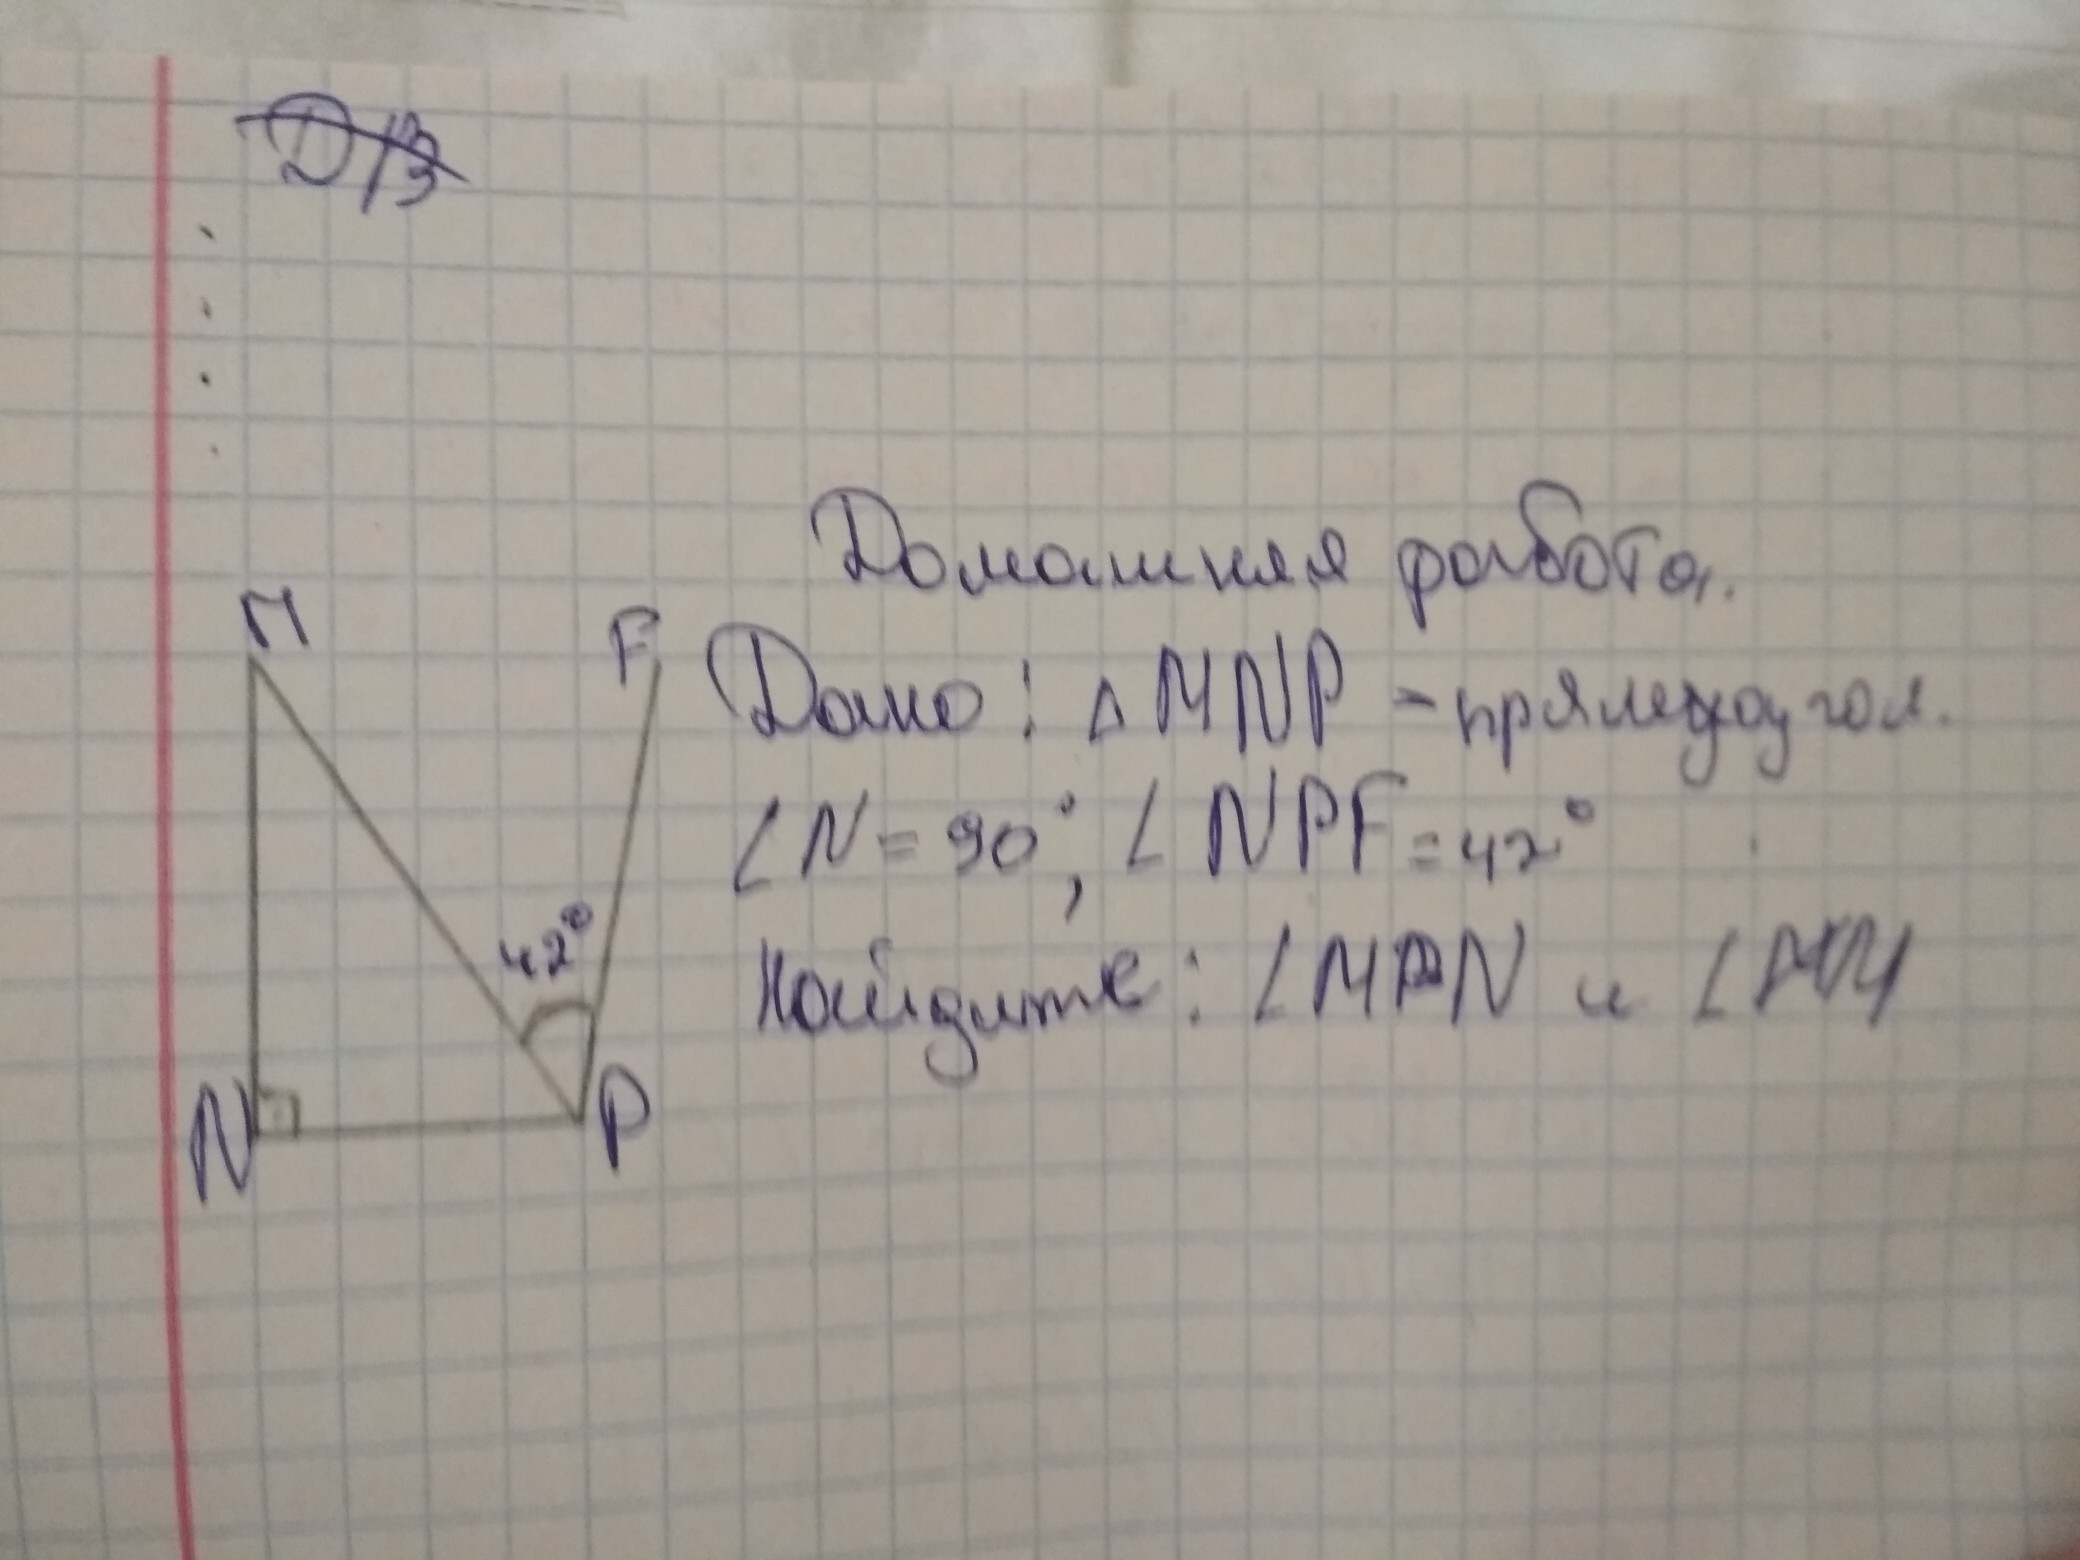 Д/З
Домашняя работа.
Дано: △MNP - прямоугол.
∠N = 90°, ∠NPF = 42°
Найдите: ∠MPN и ∠
M
F
42°
N
P